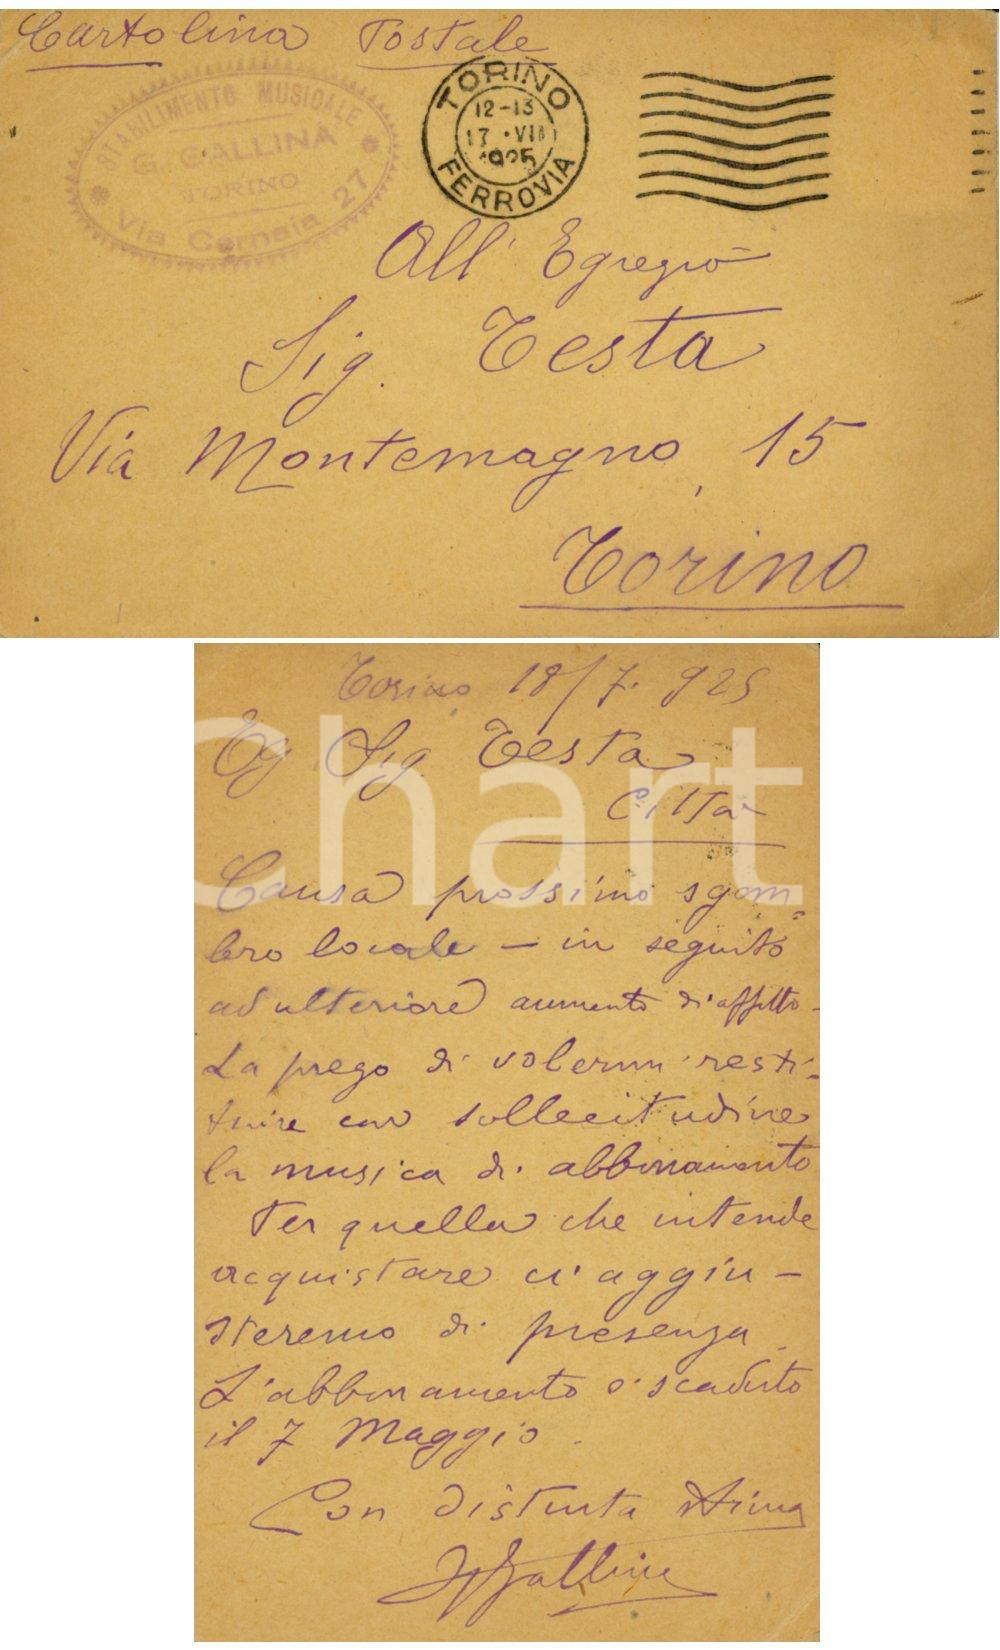 Cartolina Postale
STABILIMENTO MUSICALE
G. GALLINA
TORINO
Via Cernaia 27
TORINO
12-13
17 · VII
1925
FERROVIA
All' Egregio
Sig. Testa
Via Montemagno, 15
Torino
Torino 18/7. 925
Eg Sig Testa
Città
Chart
Causa prossimo sgom=
bero locale – in seguito
ad ulteriore aumento di affitto –
La prego di volermi resti-
tuire con sollecitudine
la musica di abbonamento
Per quella che intende
acquistare ci aggiu –
steremo di presenza.
L'abbonamento è scaduto
il 7 Maggio.
Con distinta stima
Gallina